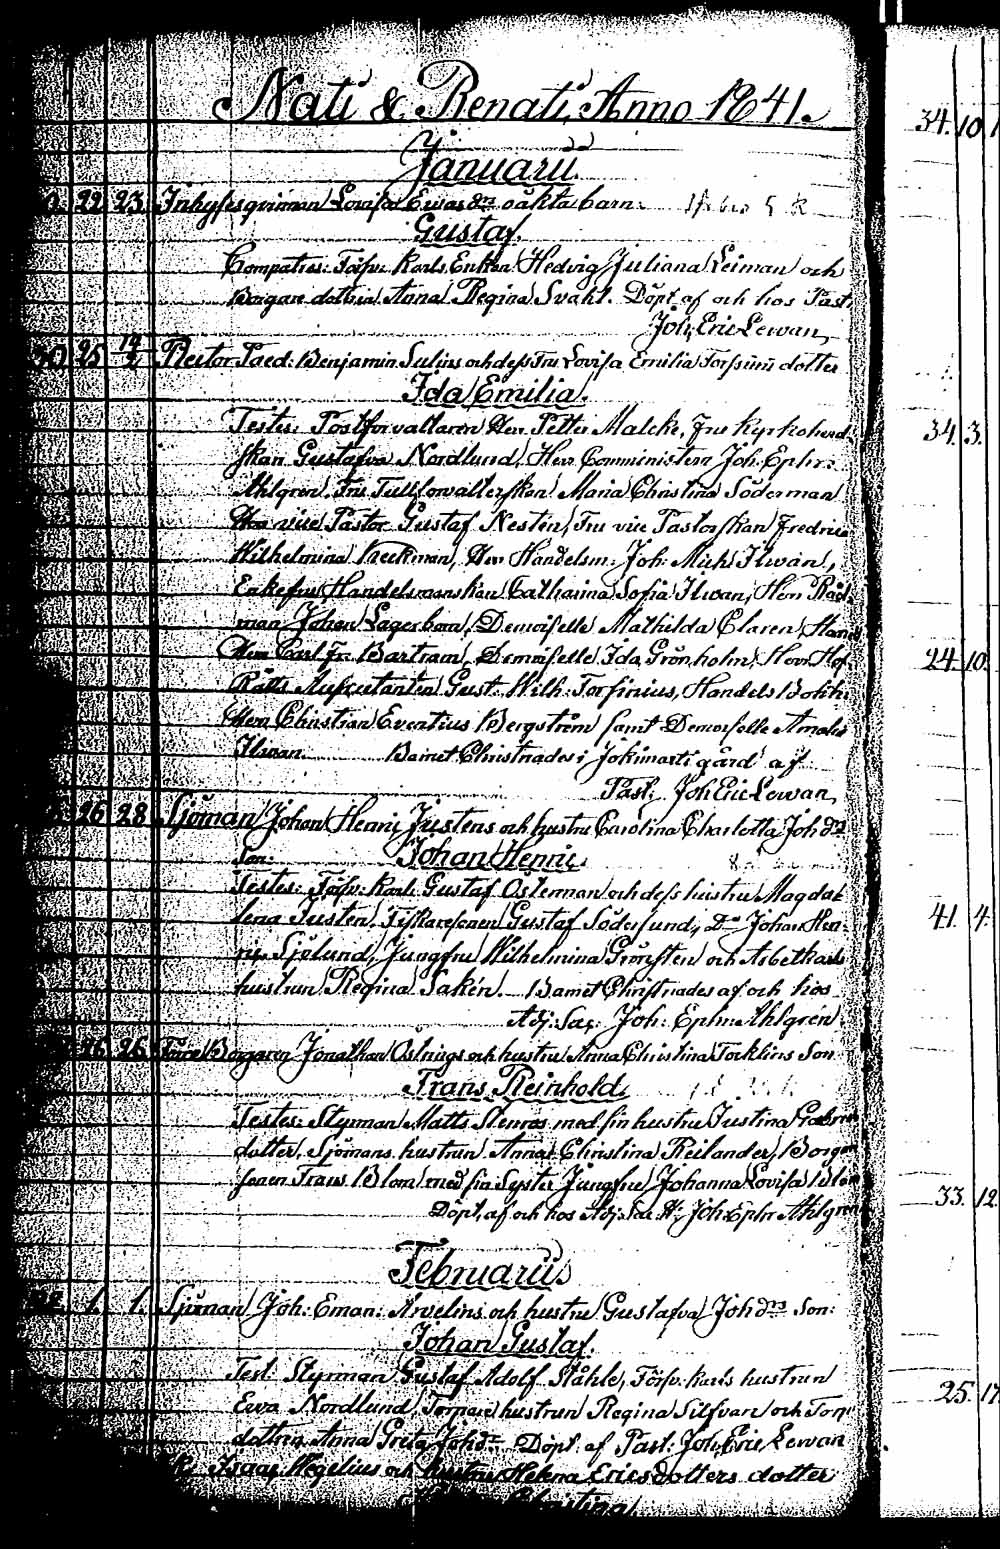 Nati & Renati, Anno 1841.
Januarii.
22 23 Inhysesqvinnan Lovisa Ewas dr oäkta barn.
Gustaf.
Compatres: Förfv: Karls Enkan Hedvig Juliana Leiman och
Borgare dottria Anna Regina Svahl. Döpt af och hos Past.
Joh. Eric Lewan,
30 25 19/2 Rector Paed: Benjamin Sulins och dess Fru Lovisa Emilia Torfinii dotter
Ida Emilia.
Testes: Postforvaltaren Herr Petter Malcke, Fru Kyrkoherd-
skan Gustafva Nordlund, Herr Comministern Joh. Ephr:
Ahlgren, Fru Tullforvalterskan Maria Christina Söderman
Herr vice Pastor Gustaf Nesten, Fru vice Pastorskan Fredrica
Wilhelmina Heckman, Herr Handelsm: Joh: Mich: Ilwan,
Enkefru Handelsmanskan Catharina Sofia Ilwan, Herr Råd-
man Johan Lagerbom, Demoiselle Mathilda Claren, Hand
Herr Carl Fr. Bartram, Demoiselle Ida Grönholm, Herr Hof
Rätts Auscutanten Gust: Wilh: Torfinius, Handels Bokh:
Herr Christian Eventius Bergström samt Demoiselle Amalia
Ilwan. Barnet Christnades i Jokimarti gård af
Past. Joh Eric Lewan,
26 28 Sjöman Johan Henric Justens och hustru Carolina Charlotta Joh drs
Son: Johan Henric.
Testes: Förfv: karls Gustaf Österman och dess hustru Magda
lena Justen, Fiskaresonen Gustaf Söderlund, Do Johan Hen-
ric Sjölund, Jungfru Wilhelmina Grönsten och Arbetkarls
hustrun Regina Sakén. Barnet Christnades af och hos
Adj: Sac: Joh: Ephr: Ahlgren.
26 26 Borgaren Jonathan Östrings och hustru Anna Christina Torklins Son
Frans Reinhold.
Testes: Styrman Matts Stenros med sin hustru Justina Gabriels
dotter, Sjömans hustrun Anna Christina Reilander, Borgar
sonen Frans Blom med sin Syster Jungfru Johanna Lovisa Blom
Döpt af och hos Adj: Sac. H: Joh: Ephr Ahlgren
Februarii
1. 1. Sjöman Joh: Eman: Arvelins och hustru Gustafva Joh drs Son:
Johan Gustaf.
Test: Styrman Gustaf Adolf Ståhle, Förfv: karls hustrun
Ewa Nordlund, Torpare hustrun Regina Silfvan och Torp
dottren Anna Greta Joh dr Döpt af Past: Joh. Eric Lewan
Isaac Wegelius och hustru Helena Ericsdotters dotter
Christina
34. 10
34. 3.
24. 10.
41. 4.
33. 12.
25. 17